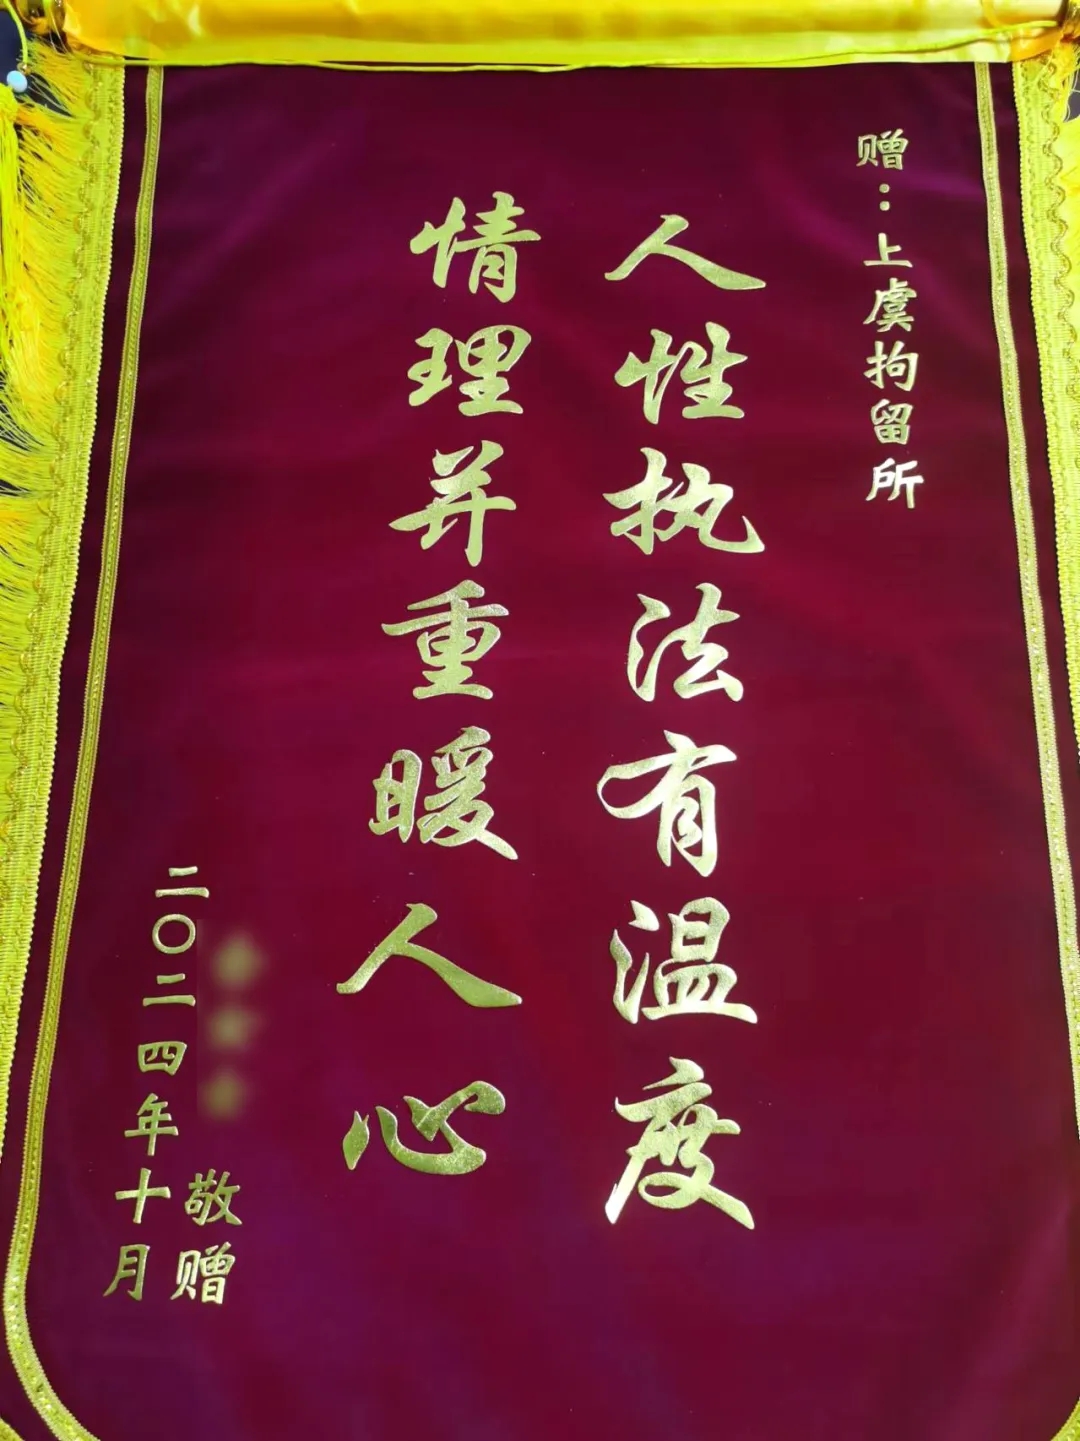 赠：上虞拘留所
人性执法有温度
情理并重暖人心
敬赠
二〇二四年十月